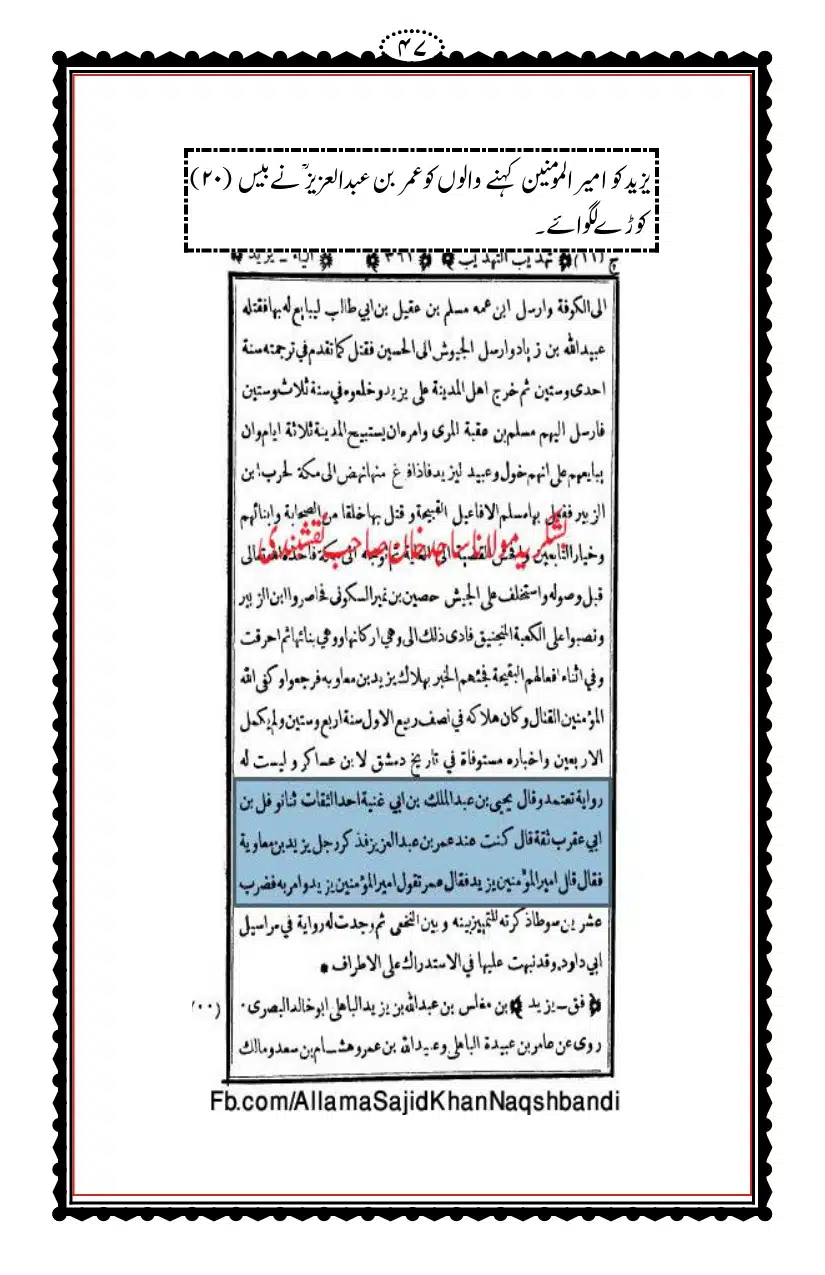 ۴۷
یزید کو امیر المومنین کہنے والوں کو عمر بن عبدالعزیزؒ نے بیس (۲۰)
کوڑے لگوائے۔
ج (۱۱) تهذيب التهذيب ٣٦١ الياء ــ يزيد
الى الكوفة وارسل ابن عمه مسلم بن عقيل بن ابي طالب ليبايع له بها فقتله
عبيدالله بن زياد وارسل الجيوش الى الحسين فقتل كما تقدم في ترجمته سنة
احدى وستين ثم خرج اهل المدينة على يزيد وخلعوه في سنة ثلاث وستين
فارسل اليهم مسلم بن عقبة المرى وامره ان يستبيح المدينة ثلاثة ايام وان
يبايعهم على انهم خول وعبيد ليزيد فاذا فرغ منها نهض الى مكة لحرب ابن
الزبير ففعل بها مسلم الافاعيل القبيحة وقتل بها خلقا من الصحابة وابنائهم
بشکریہ مولانا ساجد خان صاحب نقشبندی
وخيار التابعين الى مكة فاخذه الله تعالى
قبل وصوله واستخلف على الجيش حصين بن نمير السكونى فحاصروا ابن الزبير
ونصبوا على الكعبة المنجنيق فادى ذلك الى وهي اركانها ووهي بنائها ثم احرقت
وفي اثناء افعالهم القبيحة فجئهم الخبر بهلاك يزيد بن معاوية فرجعوا وكفى الله
المؤمنين القتال وكان هلاكه في نصف ربيع الاول سنة اربع وستين ولم يكمل
الاربعين واخباره مستوفاة في تاريخ دمشق لابن عساكر وليست له
رواية تعتمد وقال يحيى بن عبدالملك بن ابي غنية احد الثقات ثنا نوفل بن
ابي عقرب ثقة قال كنت عند عمر بن عبدالعزيز فذكر رجل يزيد بن معاوية
فقال قال امير المؤمنين يزيد فقال عمر تقول امير المؤمنين يزيد وامر به فضرب
عشرين سوطا ذكرته للتمييز بينه وبين النخعى ثم وجدت له رواية في مراسيل
ابي داود وقد نبهت عليها في الاستدراك على الاطراف *
فق ــ يزيد بن مغلس بن عبدالله بن يزيد الباهلى ابو خالد البصرى. (٠٠
روى عن عامر بن عبيدة الباهلى وعبيدالله بن عمر وهشام بن سعد ومالك
Fb.com/AllamaSajidKhanNaqshbandi